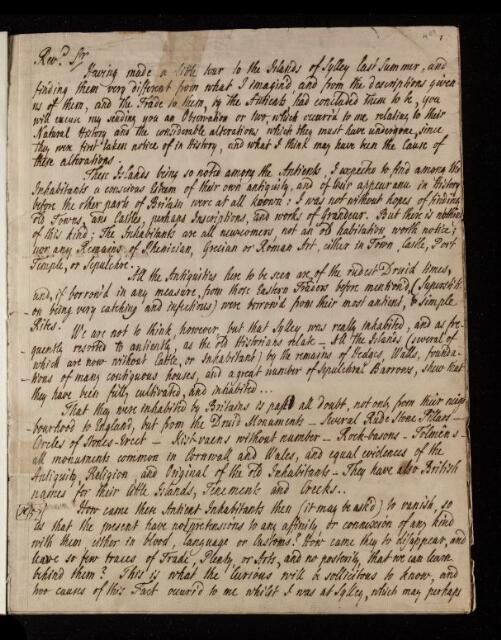 Rev.d Sr
Having made a little tour to the Islands of Sylley last Summer, and
finding them very different from what I imagin'd, and from the descriptions given
us of them, and the Trade to them, by the Antients, had concluded them to be, you
will excuse my sending you an Observation or two, which occurr'd to me relating to their
Natural History and the considerable alterations which they must have undergone, since
they were first taken notice of in History, and what I think may have been the Cause of
these alterations.
These Islands being so noted among the Antients, I expected to find among the
Inhabitants a conscious esteem of their own antiquity, and of their appearance in History
before the other parts of Britain were at all known: I was not without hopes of finding
old Towns, and Castles, perhaps Inscriptions, and works of Grandeur. But there is nothing
of this kind; The Inhabitants are all newcomers, not an old habitation worth notice;
nor any Remains of Phenician, Grecian or Roman Art, either in Town, Castle, Port
Temple, or Sepulchre.
All the Antiquities here to be seen are of the rudest Druid times,
and, if borrow'd in any measure from those Eastern Traders before mention'd, (Superstiti-
-on being very catching and infectious) were borrow'd from their most antient, & simple
Rites.
We are not to think, however, but that Sylley was really inhabited, and as fre-
quently resorted to antiently, as the old Historians relate — All the Islands (several of
which are now without Cattle, or Inhabitant) by the remains of Hedges, Walls, founda-
-tions of many contiguous houses, and a great number of Sepulchral Barrows, shew that
they have been fully cultivated, and inhabited...
That they were inhabited by Britains is past all doubt, not only from their neigh-
-bourhood to England, but from the Druid Monuments — Several Rude Stone-Pillars —
Circles of Stones-Erect — Kist-vaens without number — Rock-basons — Tolmêns —
all monuments common in Cornwall and Wales, and equal evidences of the
Antiquity, Religion and Original of the old Inhabitants — They have also British
names for their little Islands, Tenements and Creeks..
How came these Antient Inhabitants then (it may be ask'd) to vanish, so
as that the present have no pretensions to any affinity or connexion of any kind
with them either in blood, language or Customs? How came they to disappear, and
leave so few traces of Trade, Plenty, or Arts, and no posterity, that we can learn
behind them? This is what the Curious will be sollicitous to know, and
two causes of this Fact occurr'd to me whilst I was at Sylley, which may perhaps